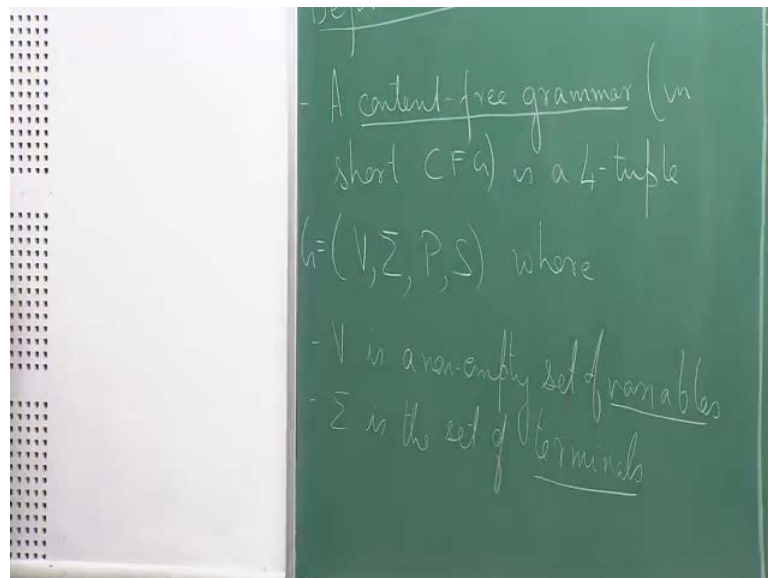 Defi
- A context-free grammar (in
short CFG) is a 4-tuple
G=(V,Σ,P,S) where
- V is a non-empty set of variables
- Σ is the set of terminals